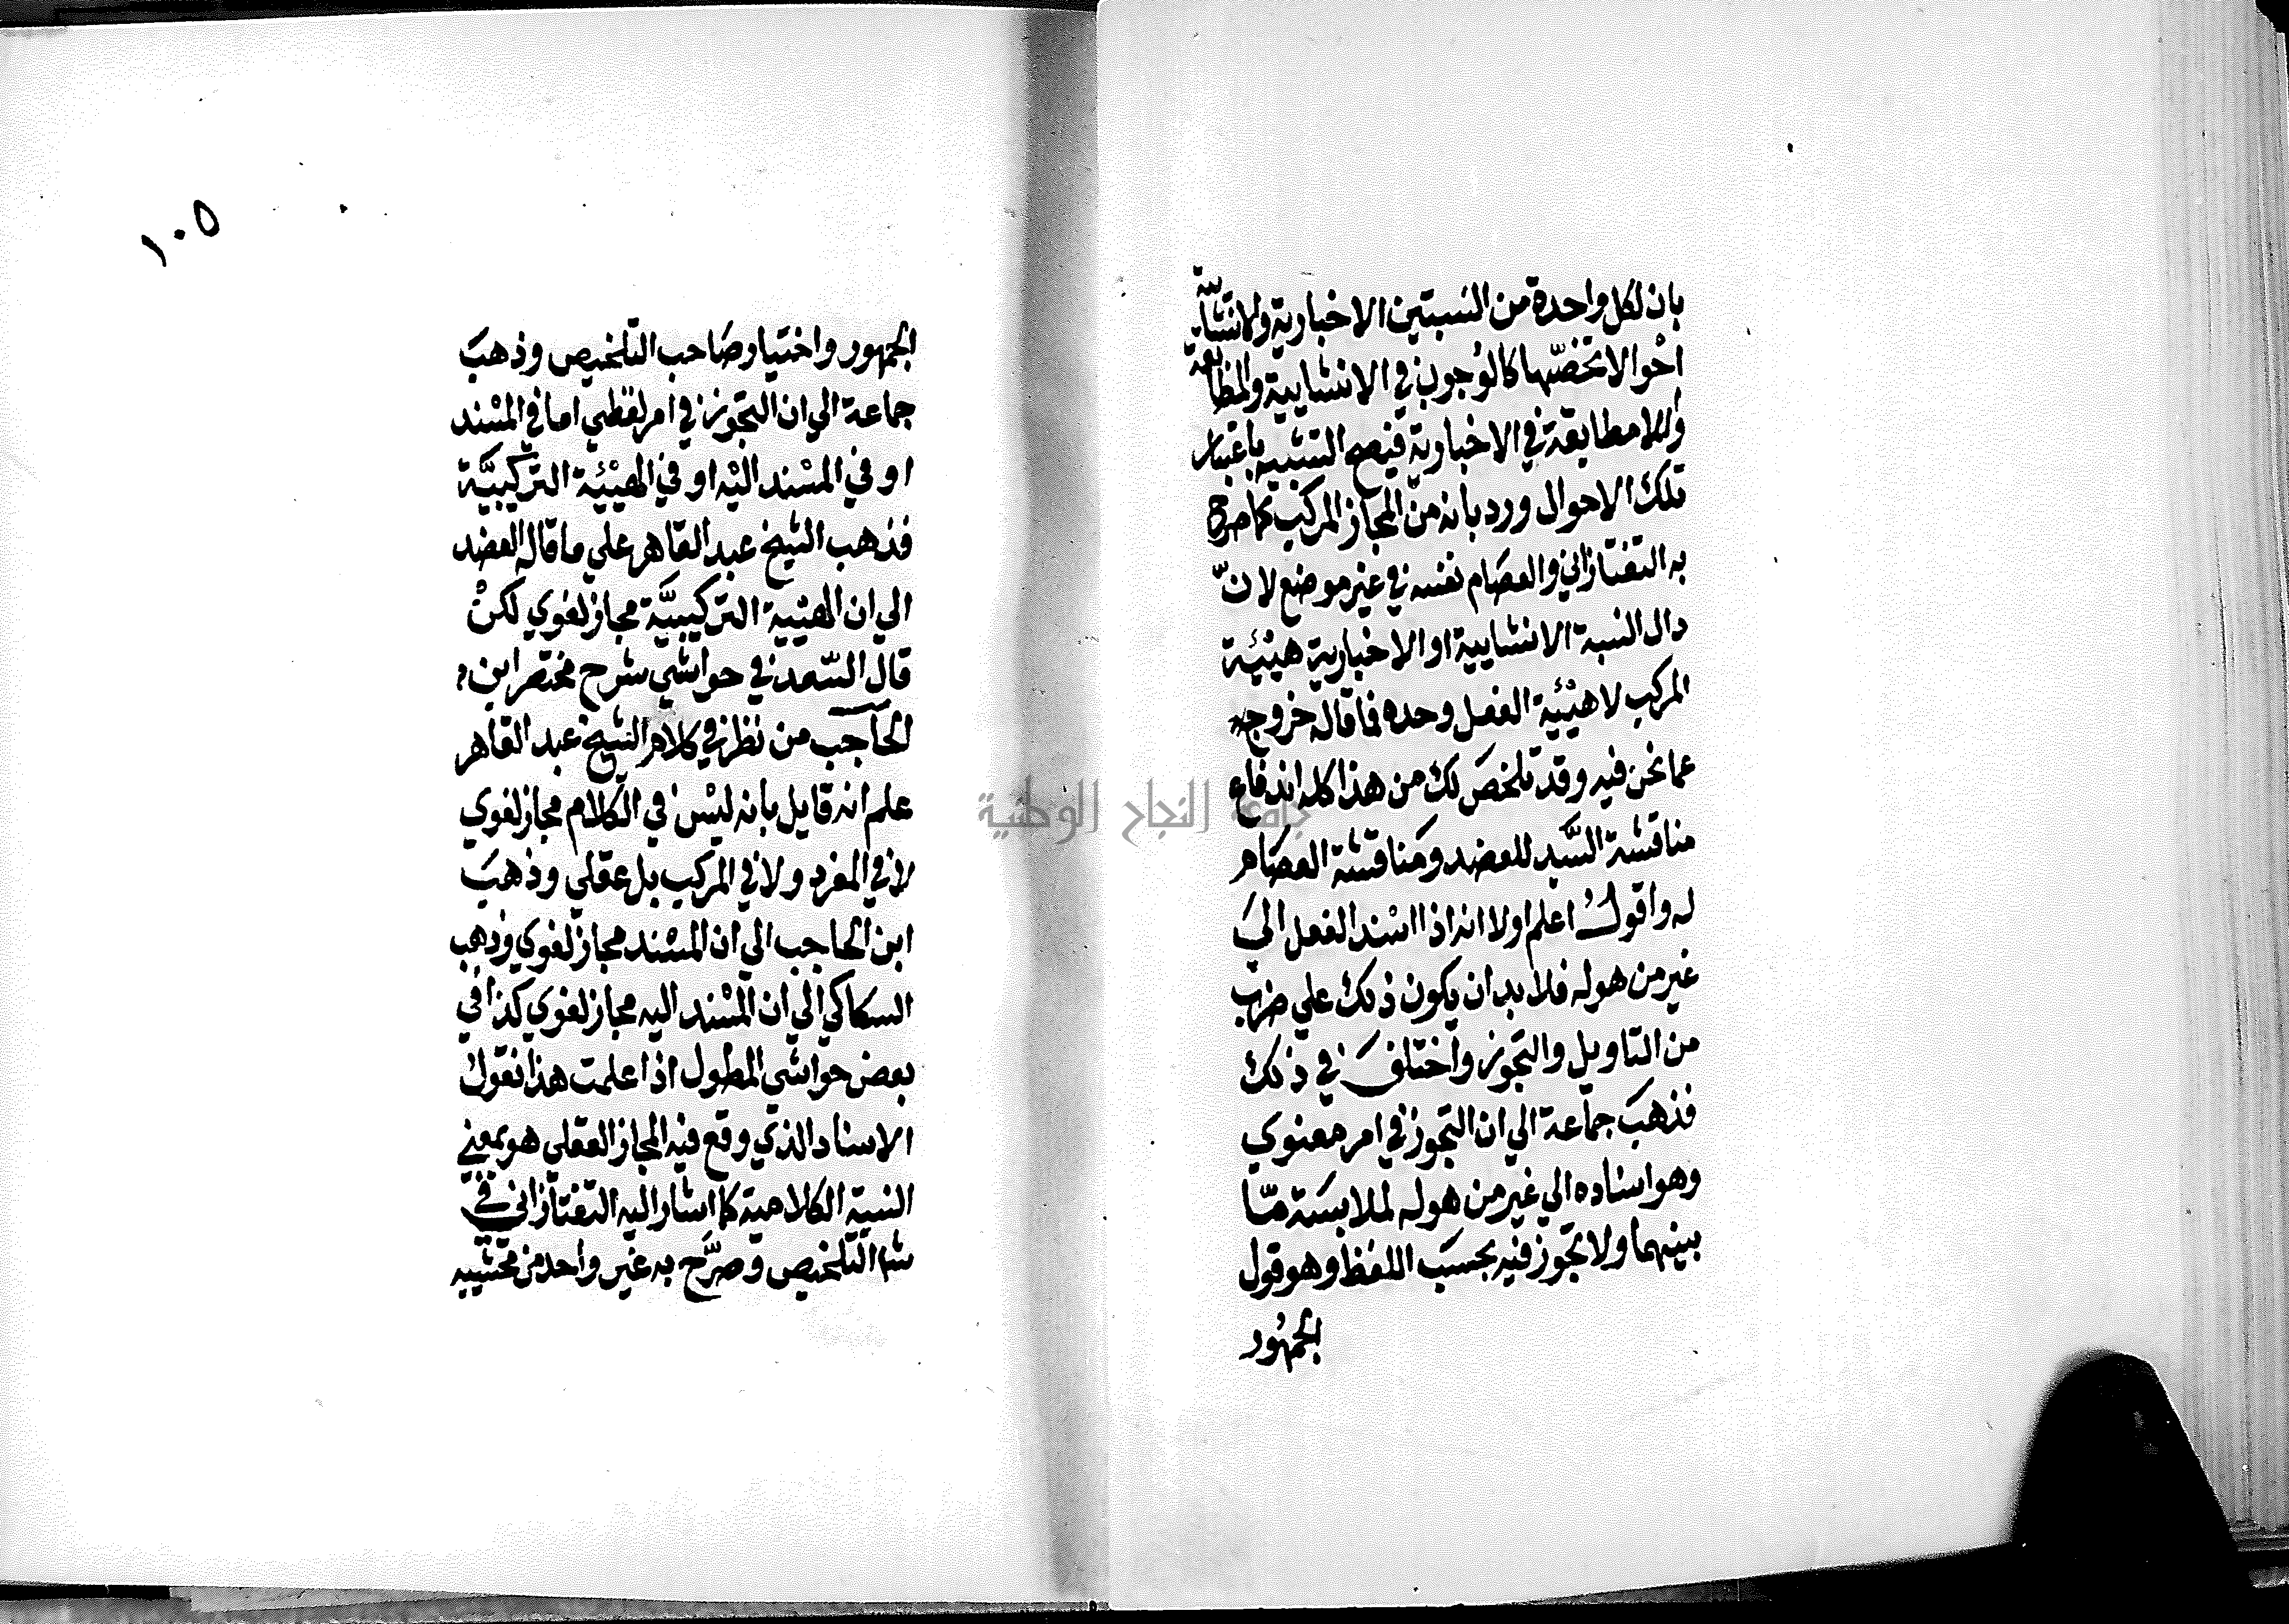 بان لكل واحدة من النسبتين الاخبارية والانشائية
احوالا تخصها كالوجوب في الانشايية والمطابقة
واللامطابقة في الاخبارية فيصح التشبيه باعتبار
تلك الاحوال ورد بانه من المجاز المركب كما صرح
به التفتازاني والعصام نفسه في غير موضع لانّ
دال النسبة الانشايية او الاخبارية هيئة
المركب لا هيئية الفعل وحده فما قاله خروج
عما نحن فيه وقد تلخص لك من هذا كله اندفاع
مناقشة السَّيد للعضد ومناقشة العصام
له واقول اعلم اولا انه اذا اسند الفعل الي
غير من هو له فلا بد ان يكون ذلك علي ضرب
من التاويل والتجوز واختلف في ذلك
فذهب جماعة الي ان التجوز في امر معنوي
وهو اسناده الي غير من هو له لملابسة مّا
بينهما ولا تجوز فيه بحسب اللفظ وهو قول
الجمهور
١٠٥
الجمهور واختيار صاحب التلخيص وذهب
جماعة الي ان التجوز في امر لفظي اما في المسند
او في المسند اليه او في الهيئة التركيبيَّة
فذهب الشيخ عبد القاهر علي ما قاله العضد
الي ان الهيئية التركيبيَّة مجاز لغوي لكن
قال السّعد في حواشي شرح مختصر ابن
الحاجب من نظر في كلام الشيخ عبد القاهر
علم انه قايل بانه ليس في الكلام مجاز لغوي
لا في المفرد ولا في المركب بل عقلي وذهب
ابن الحاجب الي ان المسند مجاز لغوي وذهب
السكاكي الي ان المسند اليه مجاز لغوي كذا في
بعض حواشي المطول اذا علمت هذا نقول
الاسناد الذي وقع فيه المجاز العقلي هو بمعني
النسبة الكلامية كما اشار اليه التفتازاني في
التلخيص وصرَّح به غير واحد من محشييه
جامعة النجاح الوطنية